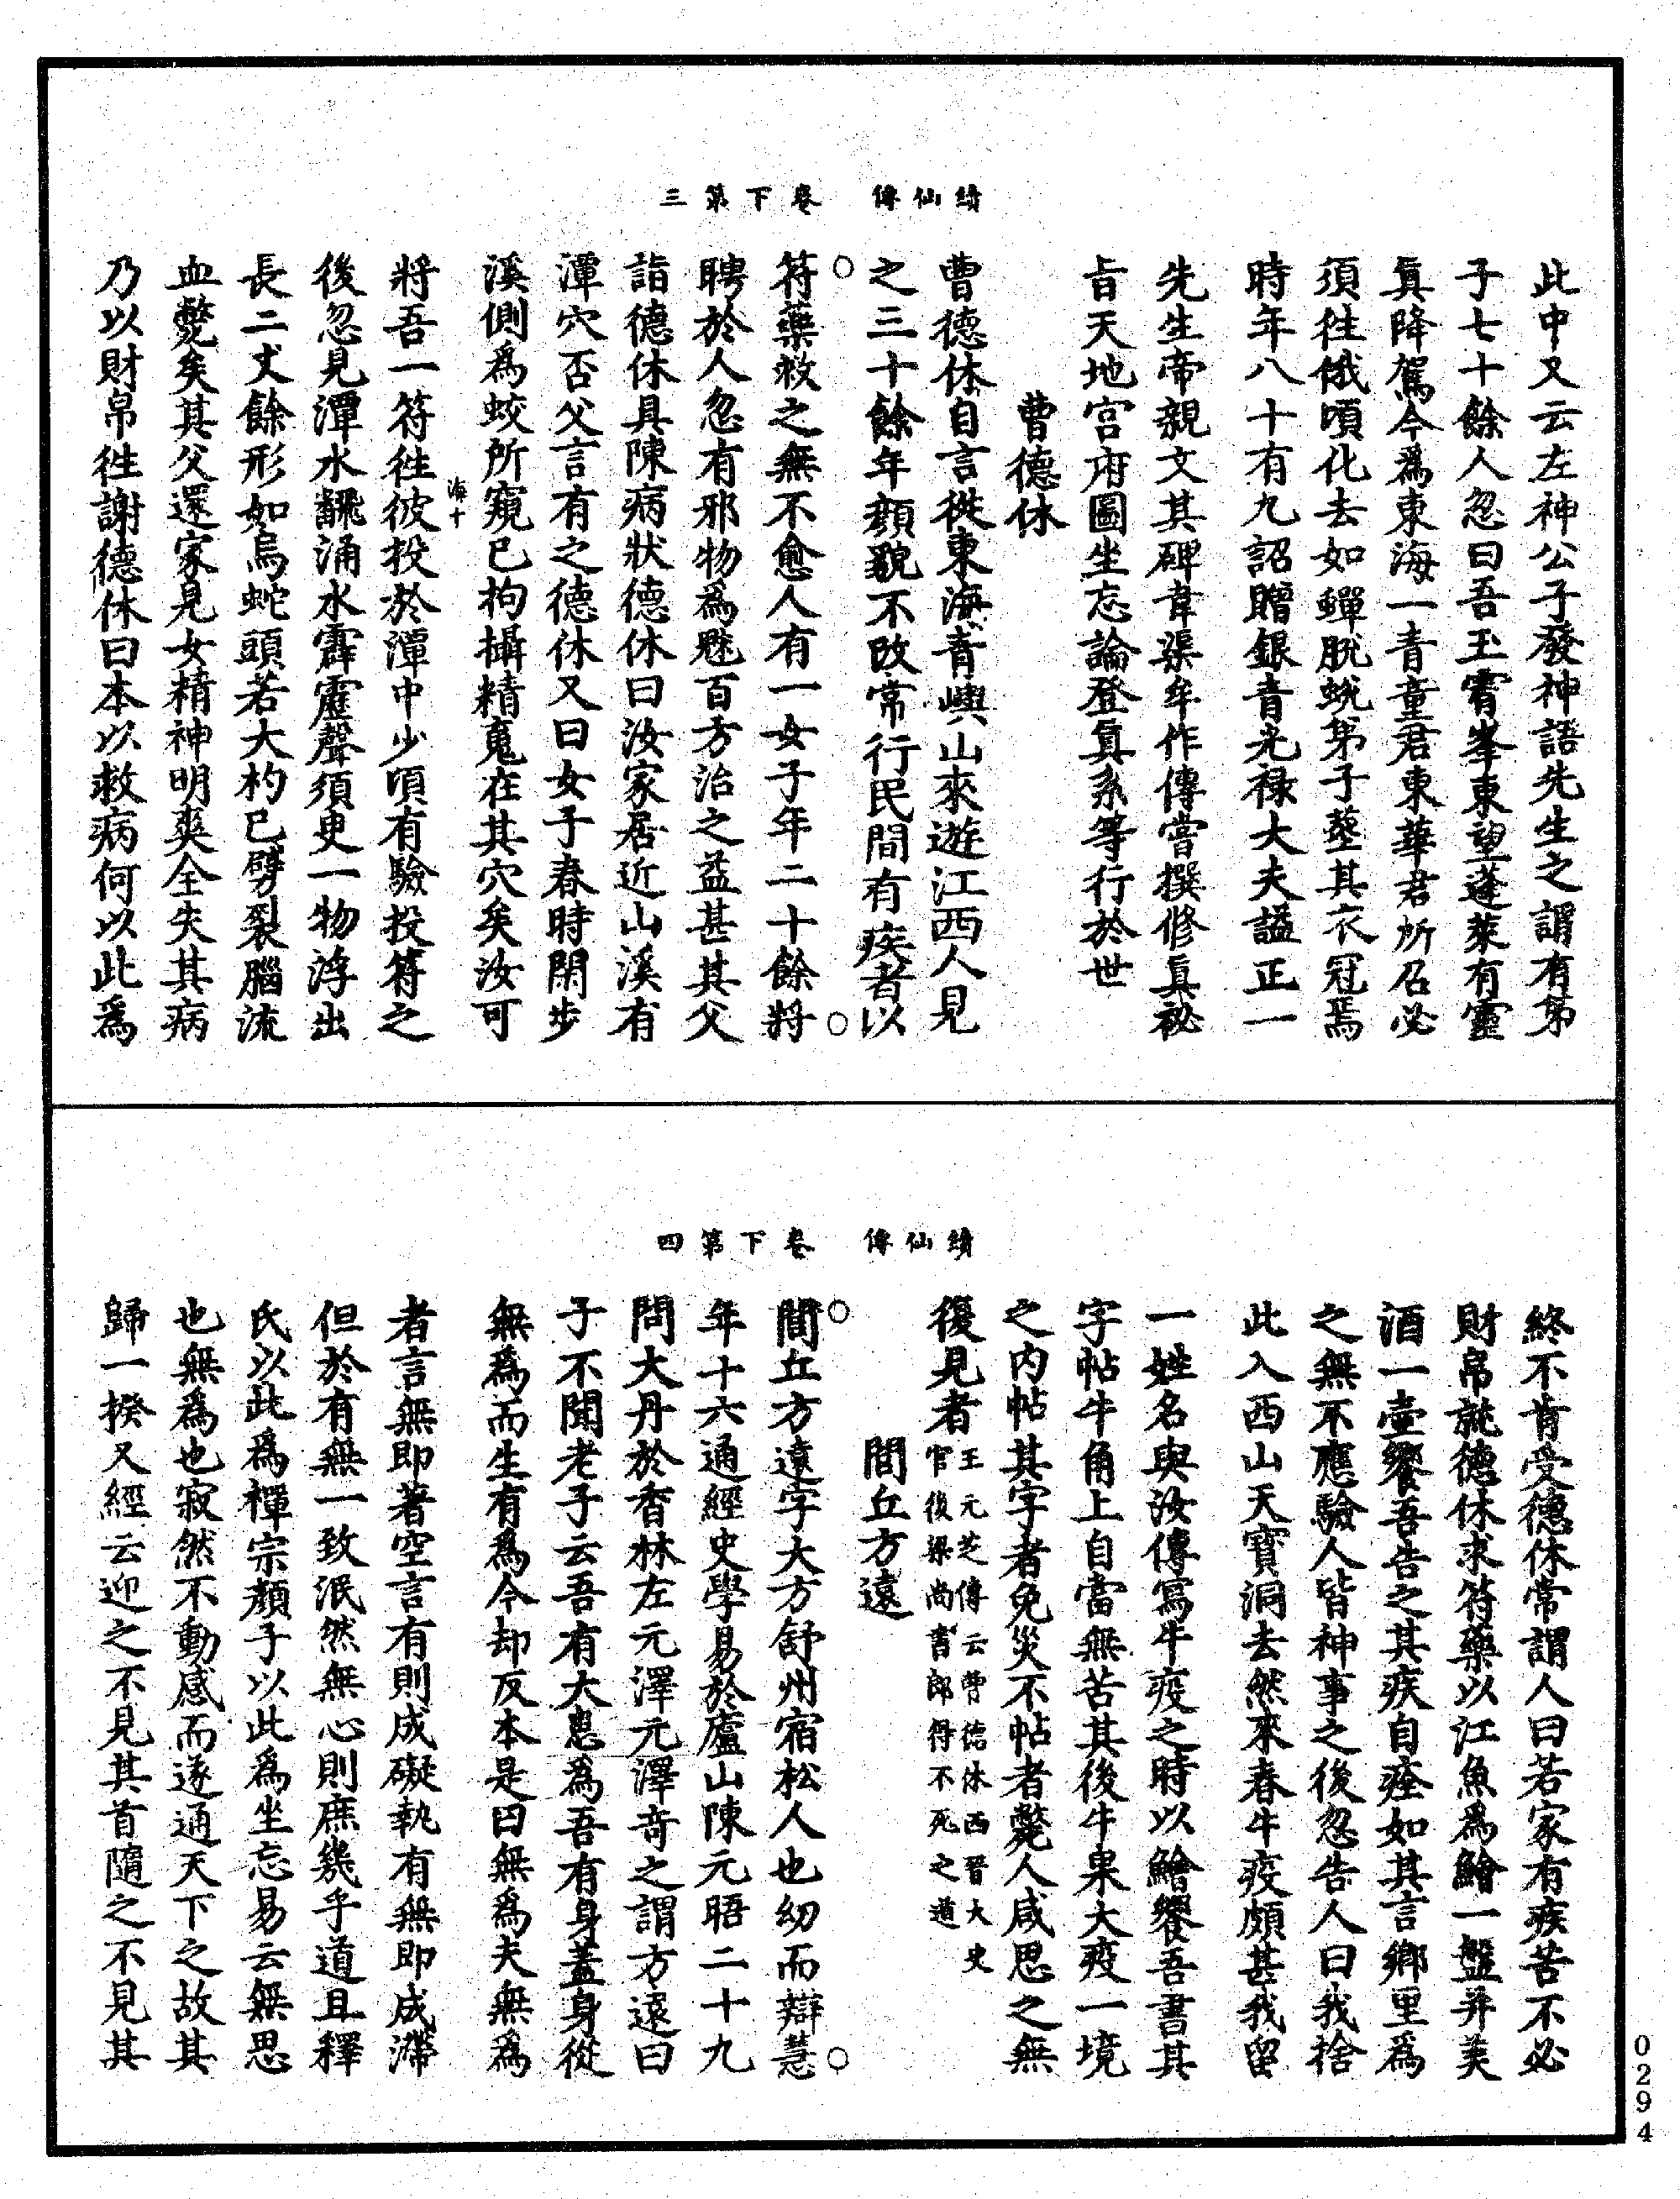 續仙傳　卷下第三
此中又云左神公子發神語先生之謂有弟
子七十餘人忽曰吾玉霄峯東望蓬萊有靈
眞降駕今爲東海一青童君東華君所召必
須徃俄頃化去如蟬脫蛻弟子塟其衣冠焉
時年八十有九詔贈銀青光祿大夫謚正一
先生帝親文其碑韋渠牟作傳嘗撰修眞祕
旨天地宫府圖坐忘論登眞系等行於世
曹德休
曹德休自言從東海青嶼山來遊江西人見
之三十餘年顏貌不改常行民間有疾者以
符藥救之無不愈人有一女子年二十餘將
聘於人忽有邪物爲魅百方治之益甚其父
詣德休具陳病狀德休曰汝家居近山溪有
潭穴否父言有之德休又曰女子春時閑步
溪側爲蛟所窺已拘攝精䰟在其穴矣汝可
海十
將吾一符徃彼投於潭中少頃有驗投符之
後忽見潭水飜涌水霹靂聲須臾一物浮出
長二丈餘形如烏蛇頭若大杓已劈裂腦流
血斃矣其父還家見女精神明爽全失其病
乃以財帛徃謝德休曰本以救病何以此爲
續仙傳　卷下第四
終不肯受德休常謂人曰若家有疾苦不必
財帛就德休求符藥以江魚爲鱠一盤并美
酒一壷饗吾告之其疾自痊如其言鄉里爲
之無不應驗人皆神事之後忽告人曰我捨
此入西山天寶洞去然來春牛疫頗甚我留
一姓名與汝傳寫牛疫之時以鱠饗吾書其
字帖牛角上自當無苦其後牛果大疫一境
之内帖其字者免災不帖者斃人咸思之無
復見者王元芝傳云曹德休西晉大史
官後梁尚書郎得不死之道
閭丘方遠
閭丘方遠字大方舒州宿松人也幼而辯慧
年十六通經史學易於廬山陳元晤二十九
問大丹於香林左元澤元澤奇之謂方遠曰
子不聞老子云吾有大患爲吾有身蓋身從
無爲而生有爲今却反本是曰無爲夫無爲
者言無即著空言有則成礙執有無即成滯
但於有無一致泯然無心則庶幾乎道且釋
氏以此爲禪宗顏子以此爲坐忘易云無思
也無爲也寂然不動感而遂通天下之故其
歸一揆又經云迎之不見其首隨之不見其
0294